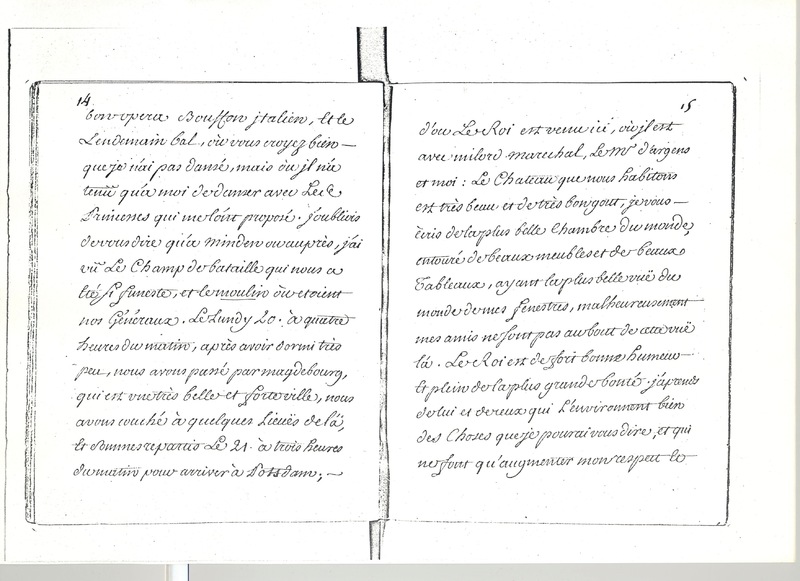 14
bon opera Bouffon jtalien, Et le
Lendemain bal, où vous croyez bien —
que je n'ai pas dansé, mais où jl n'a
tenü qu'a moi de danser avec Les
Princesses qui me l'ont proposé. j'oubliois
de vous dire qu'a Minden ou auprès, j'ai
vü Le Champ de bataille qui nous a
Eté si funeste, et le moulin où etoient
nos Généraux. Le Lundy 20. à quatre
heures du matin, après avoir dormi très
peu, nous avons passé par magdebourg,
qui est une très belle et forte ville, nous
avons couché à quelques Lieuës de là,
Et sommes repartis Le 21. à trois heures
du matin pour arriver à Potsdam; —
15
d'ou Le Roi est venu ici, où jl est
avec milord marechal, Le Mis d'argens
et moi : Le Chateau que nous habitons
est très beau et de très bon gout, je vous —
Ecris de la plus belle Chambre du monde,
entouré de beaux meubles et de beaux
Tableaux, ayant la plus belle vuë du
monde de mes fenestres, malheureusement
mes amis ne sont pas au bout de cette vuë
là. Le Roi est de fort bonne humeur
Et plein de la plus grande bonté. j'aprends
de lui et de ceux qui L'environnent bien
des Choses que je pourai vous dire, et qui
ne font qu'augmenter mon respect Et